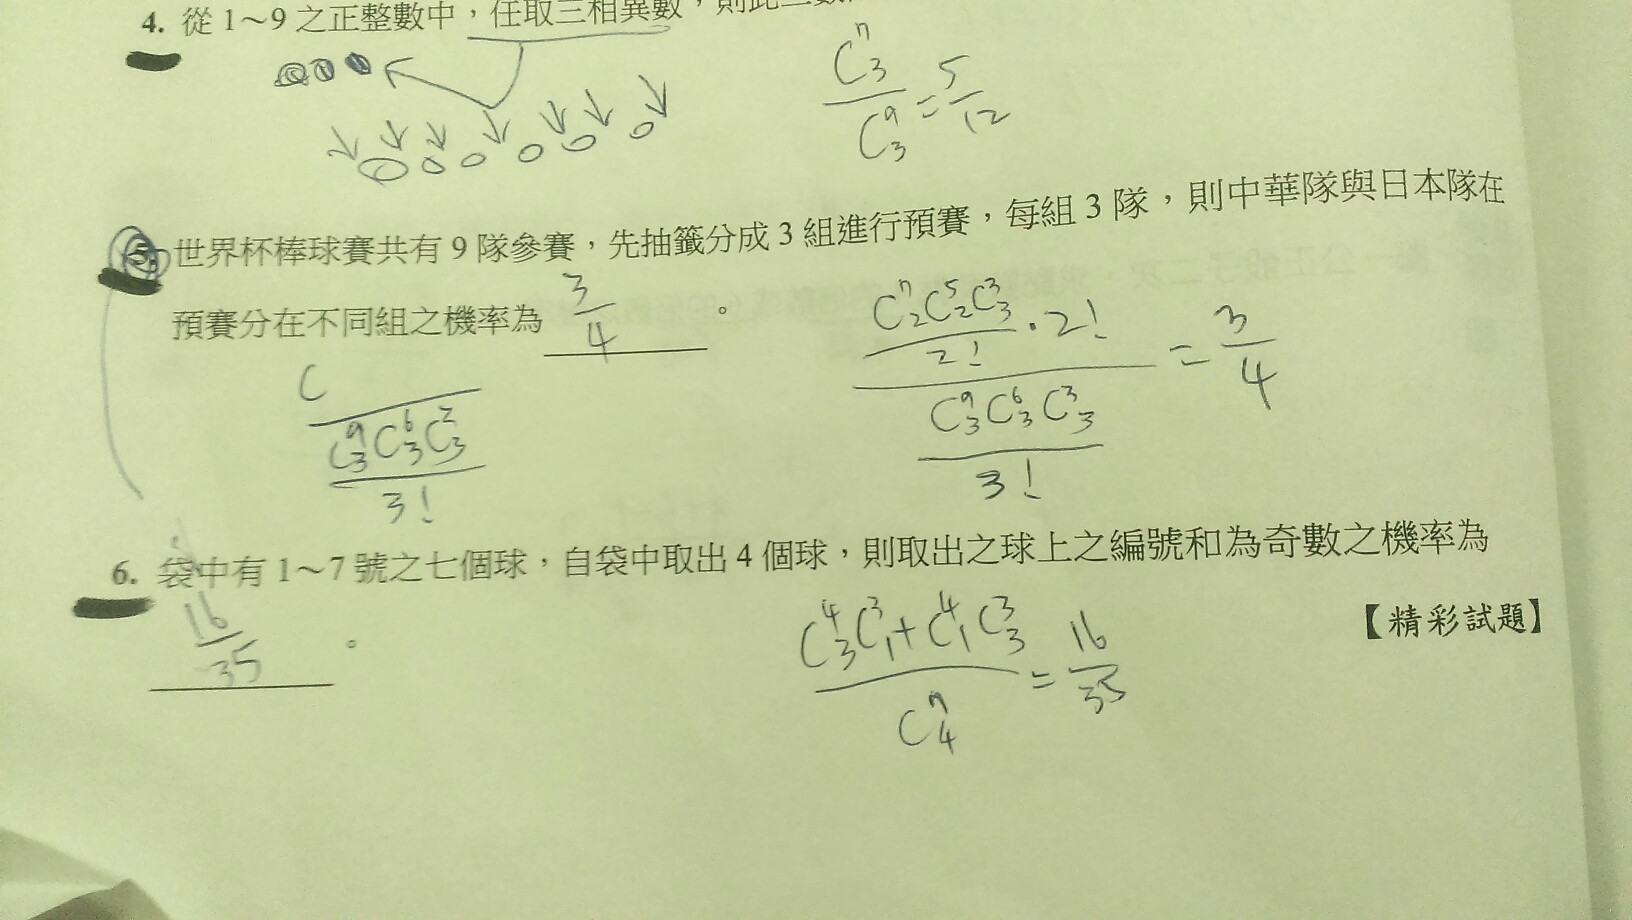 4. 從1～9之正整數中，任取三相異數，則此三數
C⁷₃ / C⁹₃ = 5/12
5. 世界杯棒球賽共有9隊參賽，先抽籤分成3組進行預賽，每組3隊，則中華隊與日本隊在
預賽分在不同組之機率為 3/4 。
C / (C⁹₃C⁶₃C³₃ / 3!)
(C⁷₂C⁵₂C³₃ / 2! · 2!) / (C⁹₃C⁶₃C³₃ / 3!) = 3/4
6. 袋中有1～7號之七個球，自袋中取出4個球，則取出之球上之編號和為奇數之機率為
16/35 。
【精彩試題】
(C⁴₃C³₁+C⁴₁C³₃) / C⁷₄ = 16/35